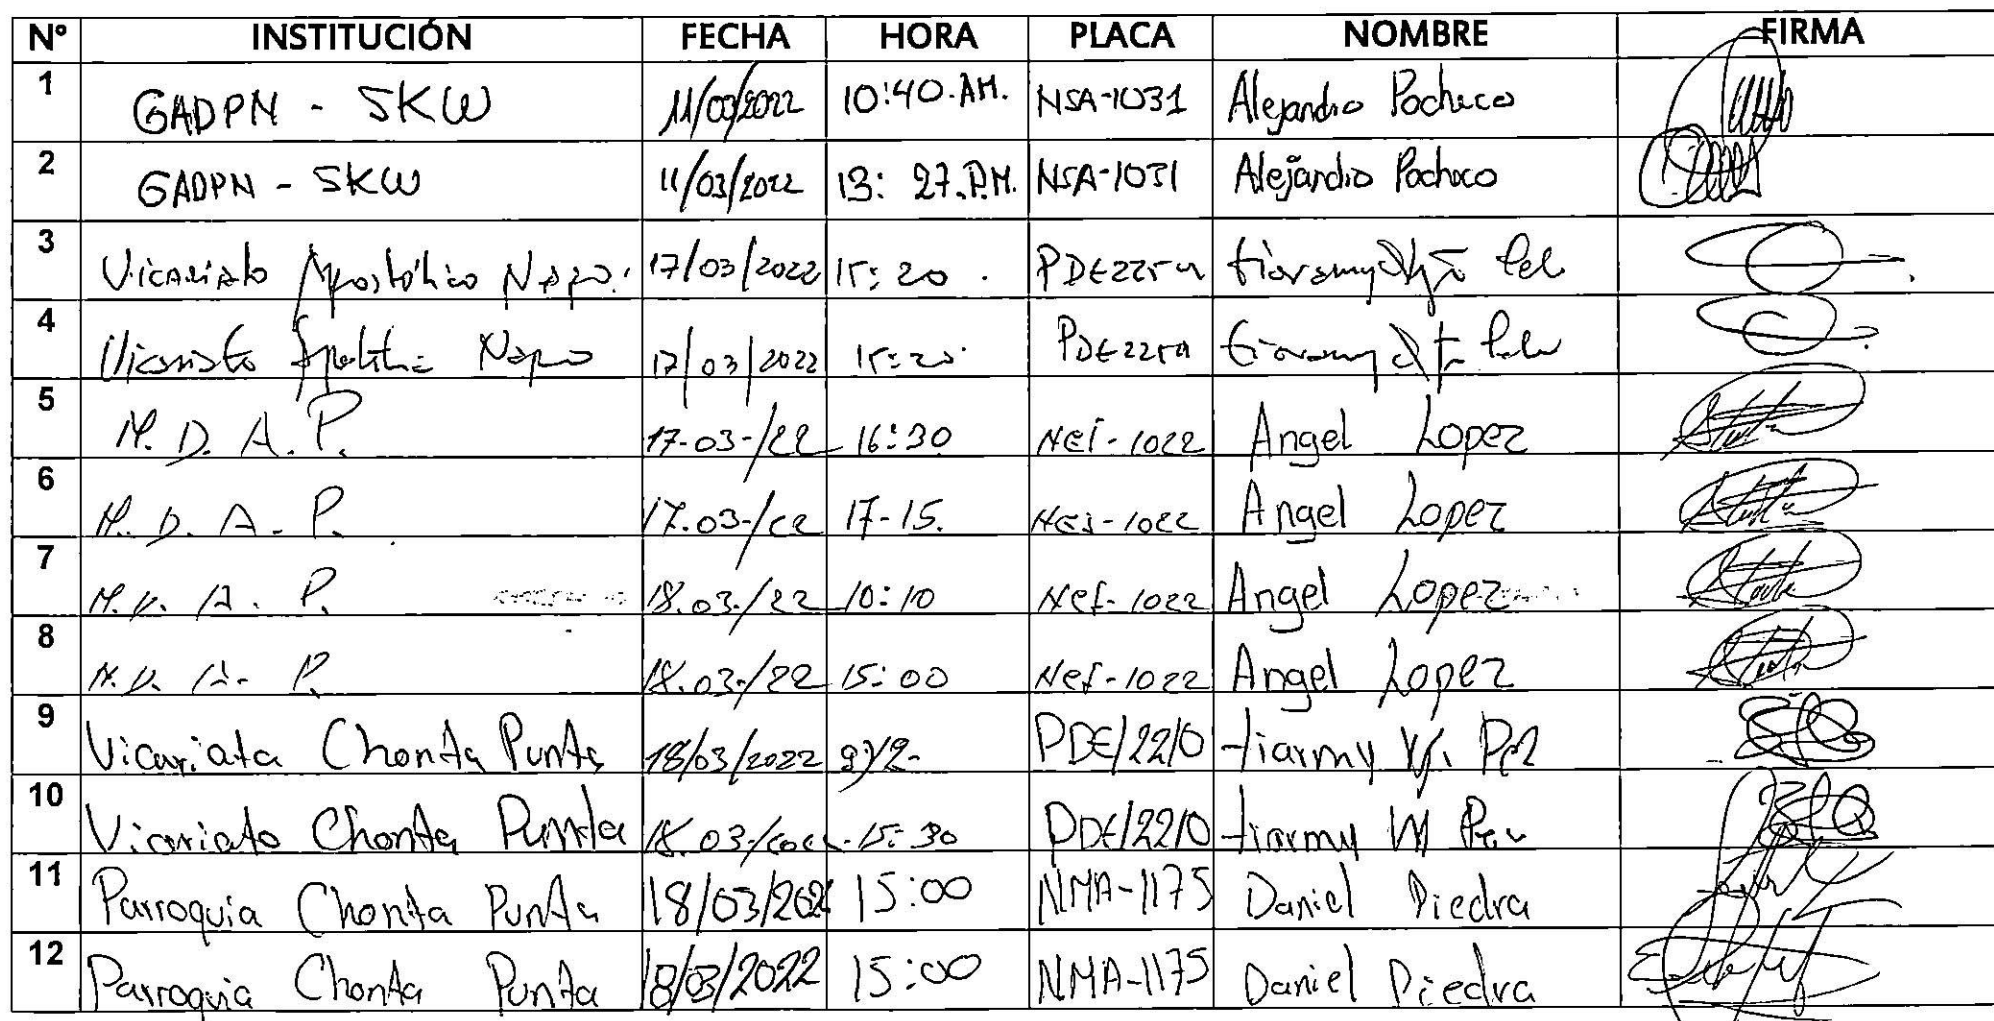 N° INSTITUCIÓN FECHA HORA PLACA NOMBRE FIRMA
1 GADPN - SKW 11/03/2022 10:40.AM. NSA-1031 Alejandro Pacheco
2 GADPN - SKW 11/03/2022 13:27.P.M. NSA-1031 Alejandro Pacheco
3 Vicariato Apostólico Napo. 17/03/2022 15:20.
4 Vicariato Napo 17/03/2022 15:20.
5 M. D. A. P. 17-03-/22 16:30 Nei-1022 Angel Lopez
6 M. D. A. P. 17.03-/22 17-15. Nei-1022 Angel Lopez
7 M. D. A. P. 18.03-/22 10:10 Nei-1022 Angel Lopez
8 M. D. A. P. 18.03-/22 15:00 Nei-1022 Angel Lopez
9 Vicariata Chonta Punta 18/03/2022 PDE/2210
10 Vicariato Chonta Punta 18.03-/2022 15:30 PDE/2210
11 Parroquia Chonta Punta 18/03/202 15:00 NMA-1175 Daniel Piedra
12 Parroquia Chonta Punta 18/03/2022 15:00 NMA-1175 Daniel Piedra